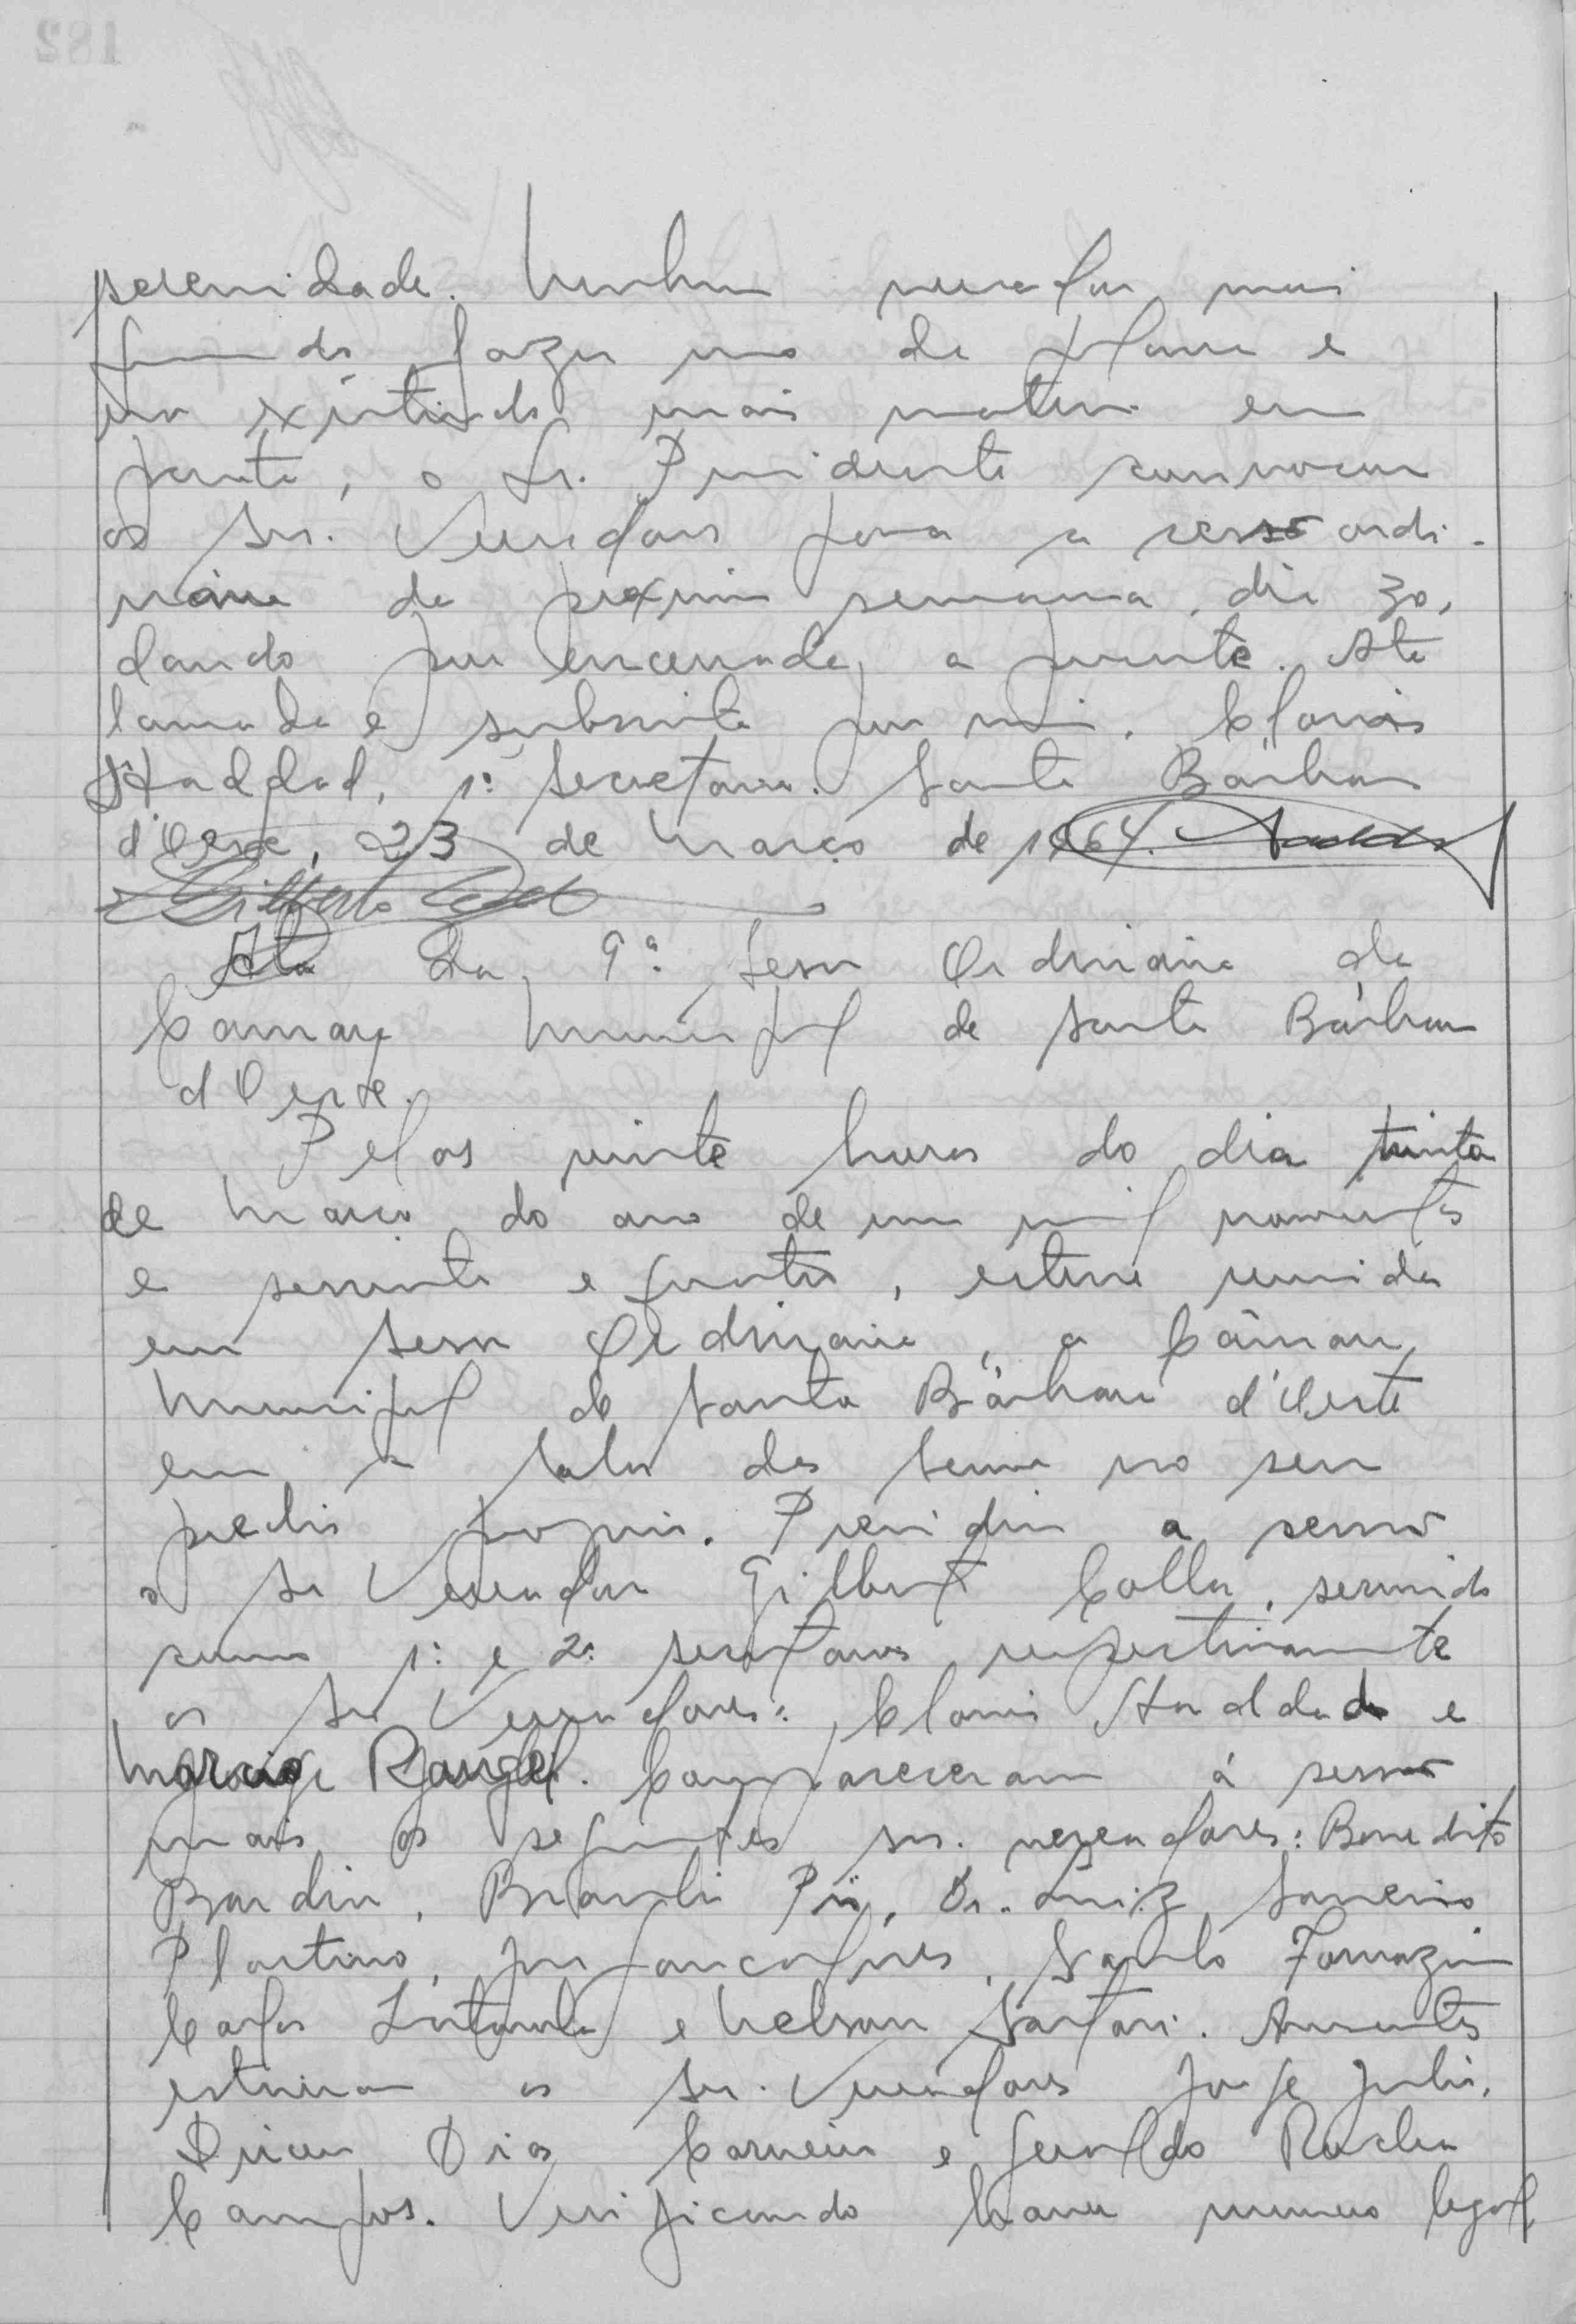 serenidade. Nenhum vereador mais
querendo fazer uso da palavra e
não existindo mais matéria em
pauta, o Sr. Presidente convocou
os Srs. Vereadores para a sessão ordi-
nária da próxima semana, dia 30,
dando por encerrada a presente. Ata
lavrada e subscrita por mim, Clovis
Haddad, 1º Secretario. Santa Bárbara
d'Oeste, 23 de Março de 1964.
Ata da 9ª Sessão Ordinária da
Camara Municipal de Santa Bárbara
d'Oeste.
Pelas vinte horas do dia trinta
de Março do ano de um mil novecentos
e sessenta e quatro, esteve reunida
em Sessão Ordinária, a Câmara
Municipal de Santa Bárbara d'Oeste
em a sala das Sessões no seu
predio proprio. Presidiu a sessão
o Sr Vereador Gilberto Colla, servindo
como 1º e 2º secretarios respectivamente
os Srs Vereadores: Clovis Haddad e
Rangel. Compareceram á sessão
mais os seguintes srs. vereadores: Benedito
Bardin, Braulio Pio, Dr. Luiz
Carlos e Nelson Sartori. Ausentes
estiveram os Srs. Vereadores Jorge Julio,
Dirceu Dias Carneiro e Geraldo Rocha
Campos. Verificando haver numero legal